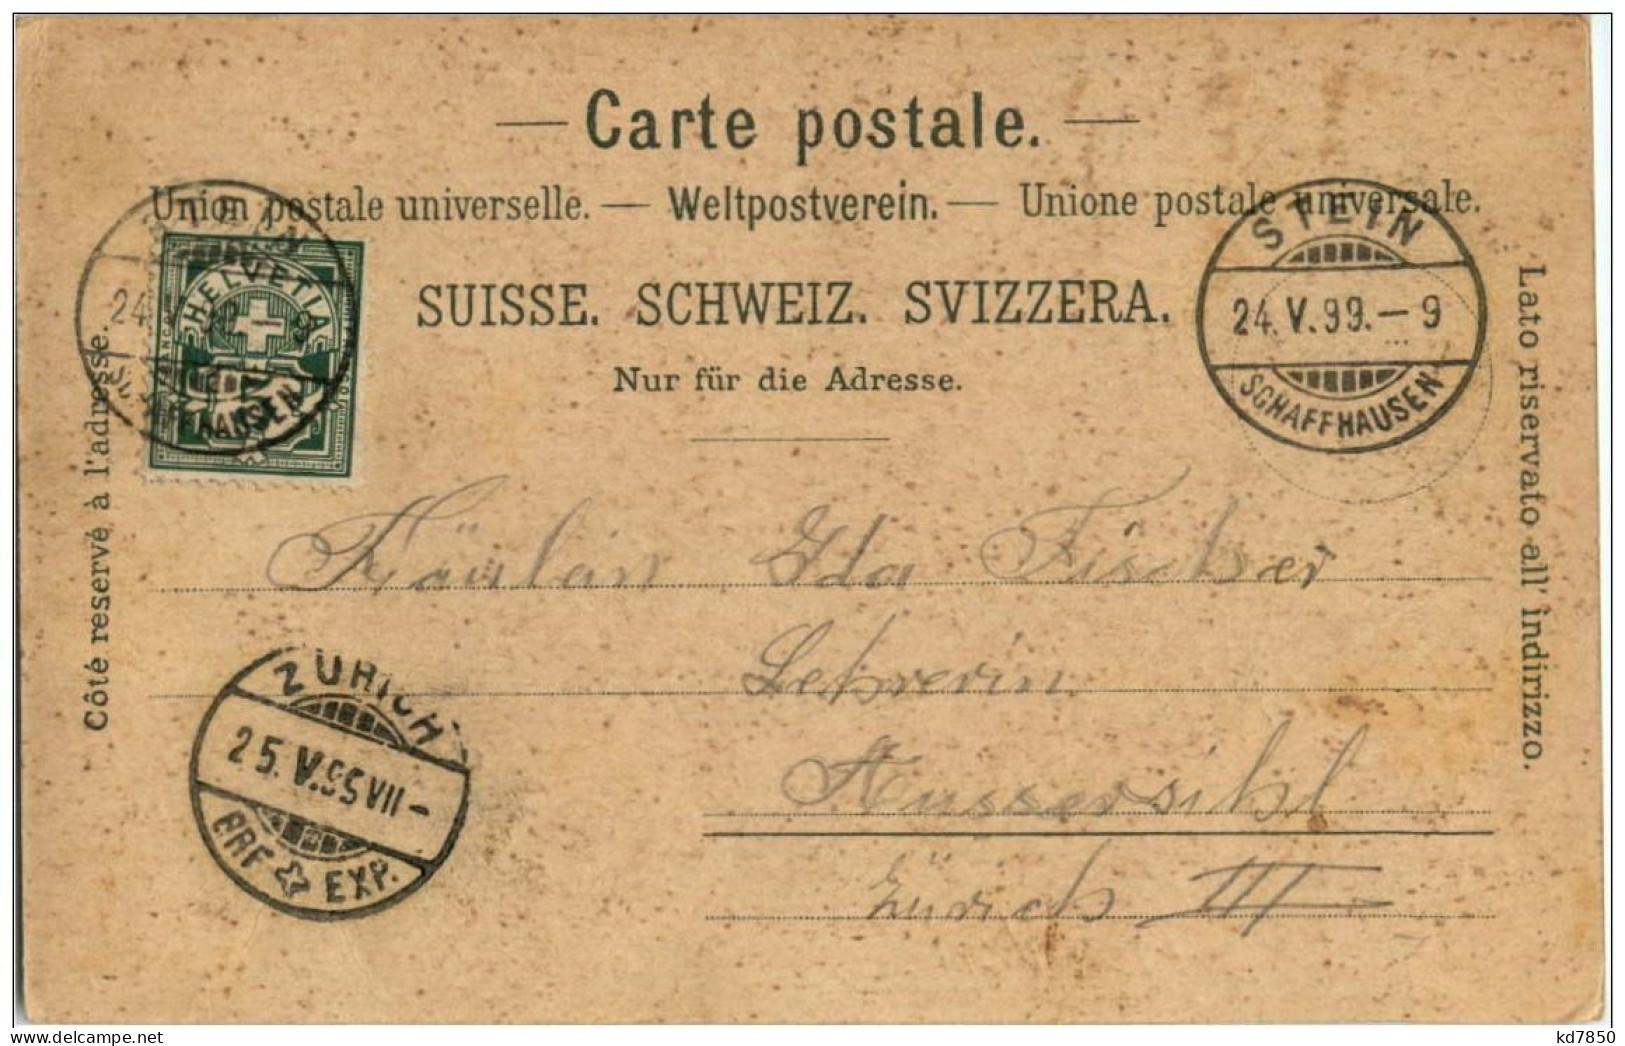 Carte postale.
Union postale universelle. — Weltpostverein. — Unione postale universale.
SUISSE. SCHWEIZ. SVIZZERA.
Nur für die Adresse.
Côté reservé à l'adresse.
Lato riservato all' indirizzo.
STEIN
24. V. 99. – 9
SCHAFFHAUSEN
STEIN
24.
SCHAFFHAUSEN
HELVETIA
Fräulein Ida Fischer
Lehrerin
Aussersihl
Zürich III
ZÜRICH
25. V. 95 VII –
BRF EXP.
delcampe.net
kd7850